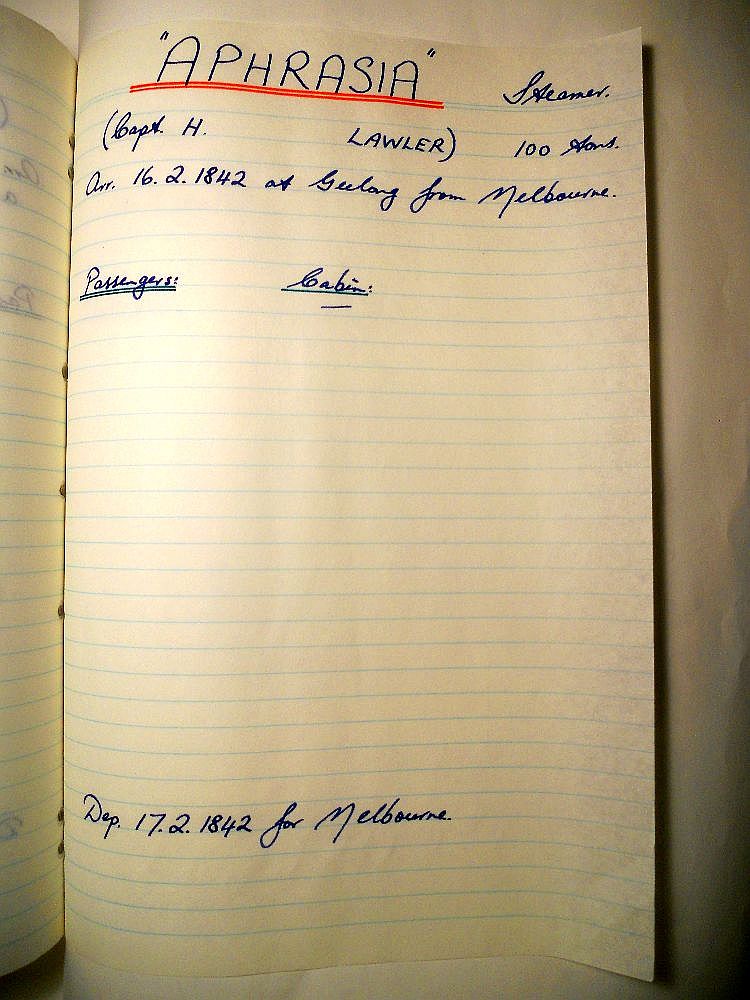 "APHRASIA" Steamer.
(Capt. H. LAWLER) 100 tons.
Arr. 16.2.1842 at Geelong from Melbourne.
Passengers: Cabin:
—
Dep. 17.2.1842 for Melbourne.